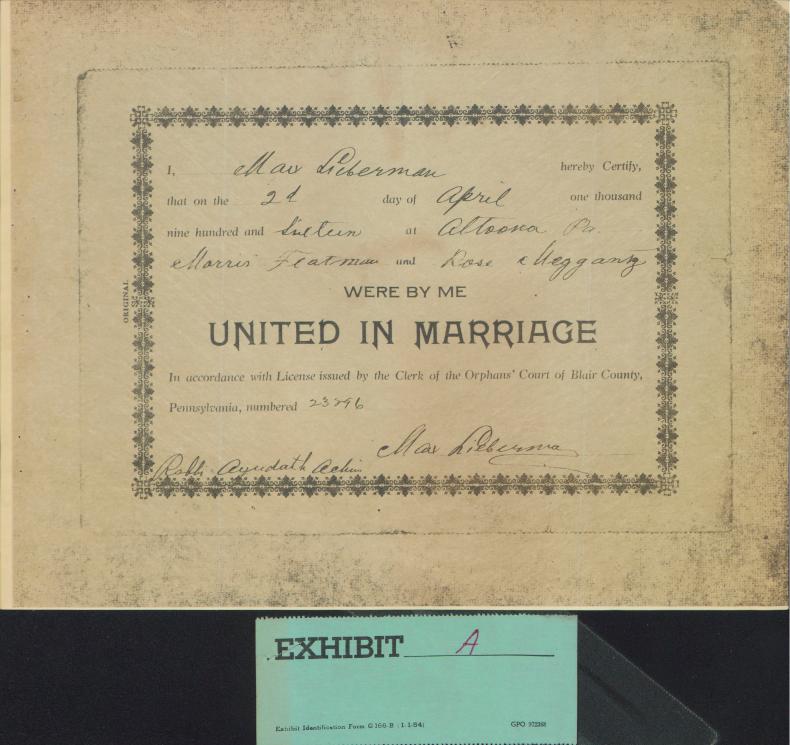 I, Max Lieberman hereby Certify,
that on the 2d day of April one thousand
nine hundred and Sixteen at Altoona Pa.
Morris Flatman and Rose Meggantz
WERE BY ME
UNITED IN MARRIAGE
In accordance with License issued by the Clerk of the Orphans' Court of Blair County,
Pennsylvania, numbered 23296
Max Lieberman
Rabbi Agudath Achim
ORIGINAL
EXHIBIT A
Exhibit Identification Form G-166-B (1-1-54)
GPO 972268